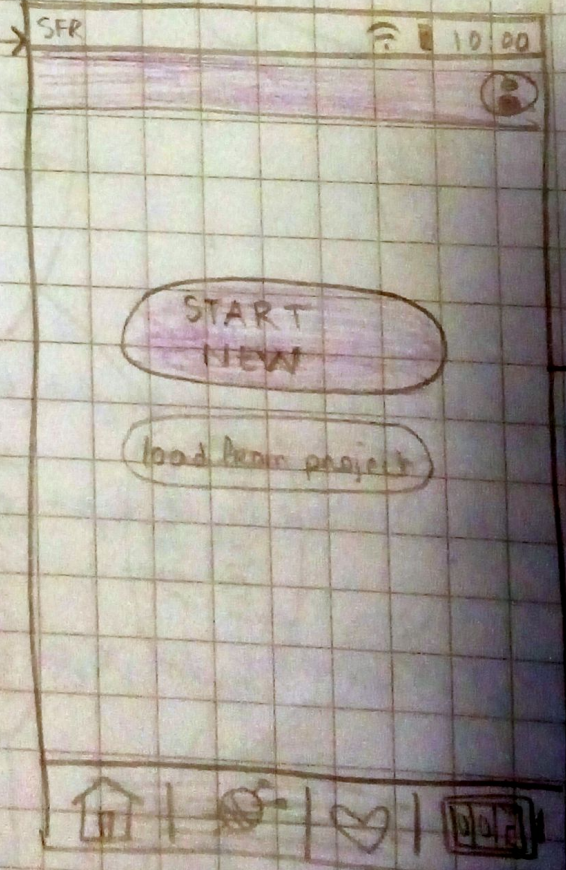 SFR 10:00
START
NEW
load from project
002